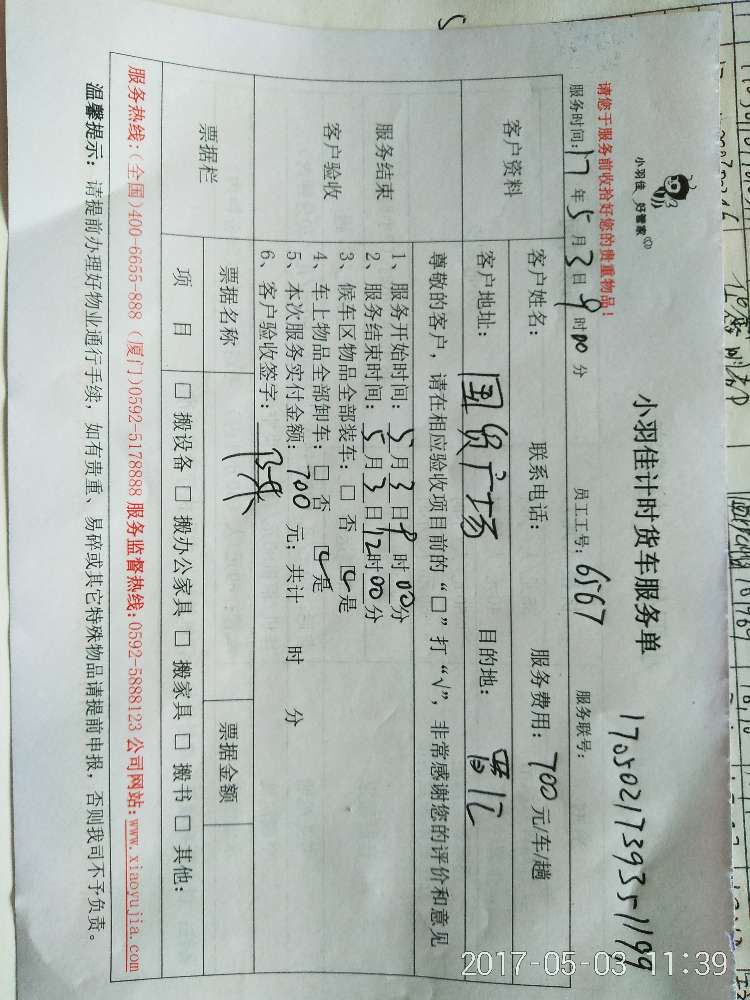 小羽佳 好管家
小羽佳计时货车服务单
17050217393551199
请您于服务前收拾好您的贵重物品!
服务时间:17年5月3日9时00分 员工工号:6567 服务联号:
客户资料 客户姓名: 联系电话: 服务费用:700元/车/趟
客户地址:国贸广场 目的地:
服务结束
客户验收
尊敬的客户,请在相应验收项目前的“□”打“√”,非常感谢您的评价和意见
1、服务开始时间:5月3日9时00分
2、服务结束时间:5月3日12时00分
3、候车区物品全部装车:□ 否 ☑是
4、车上物品全部卸车:□ 否 ☑是
5、本次服务实付金额:700元;共计 时 分
6、客户验收签字:
票据栏 票据名称 票据金额
项 目 □ 搬设备 □ 搬办公家具 □ 搬家具 □ 搬书 □ 其他:
服务热线:(全国)400-6655-888 (厦门)0592-5178888 服务监督热线:0592-5888123 公司网站:www.xiaoyujia.com
温馨提示:请提前办理好物业通行手续,如有贵重、易碎或其它特殊物品请提前申报,否则我司不予负责。
2017-05-03 11:39